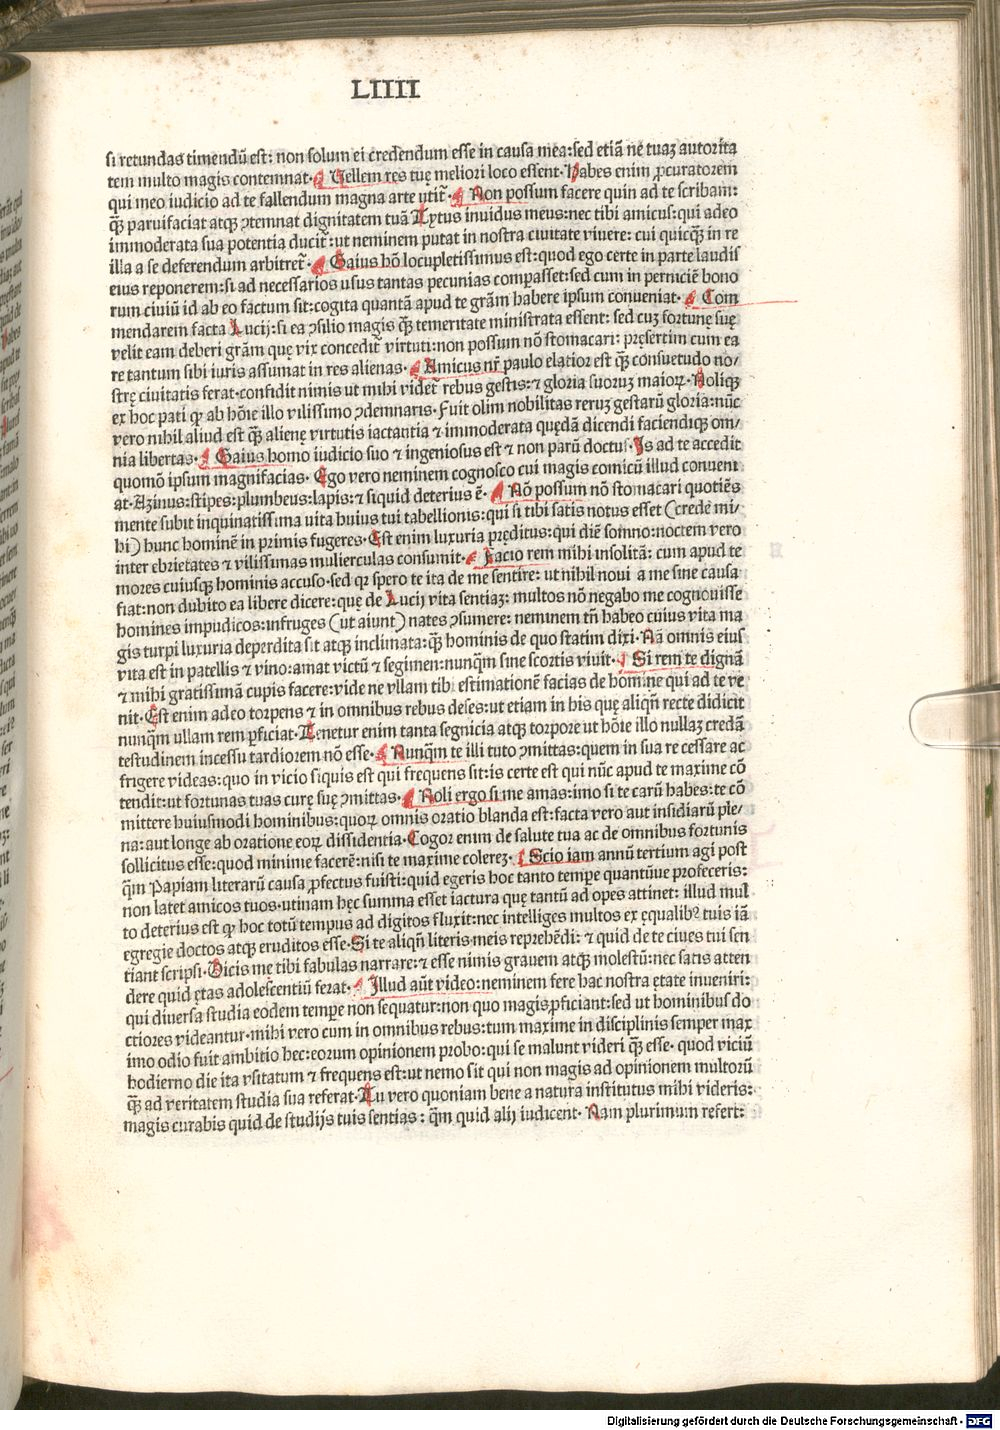 LIIII
si retundas timendū est: non solum ei credendum esse in causa mea: sed etiā ne tuaꝫ autorita
tem multo magis contemnat· Uellem res tuę meliori loco essent· Habes enim ꝓcuratorem
qui meo iudicio ad te fallendum magna arte utit᷑· Non possum facere quin ad te scribam:
qꝫ̄ paruifaciat atqꝫ ꝯtemnat dignitatem tuā Lytus inuidus meus: nec tibi amicus: qui adeo
immoderata sua potentia ducit᷑: ut neminem putat in nostra ciuitate viuere: cui quicqꝫ̄ in re
illa a se deferendum arbitret᷑· Gaius hō locupletissimus est: quod ego certe in parte laudis
eius reponerem: si ad necessarios usus tantas pecunias compasset: sed cum in perniciē bono
rum ciuiū id ab eo factum sit: cogita quantā apud te grām habere ipsum conueniat· Com
mendarem facta Lucij: si ea ꝯsilio magis qꝫ̄ temeritate ministrata essent: sed cuꝫ fortunę suę
velit eam deberi grām quę vix concedit᷑ virtuti: non possum nō stomacari: pręsertim cum ea
re tantum sibi iuris assumat in res alienas· Amicus nr̄ paulo elatior est qꝫ̄ consuetudo no/
strę ciuitatis ferat· confidit nimis ut mihi videt᷑ rebus gestis: ⁊ gloria suoruꝫ maioꝝ· Noliqꝫ
ex hoc pati ꝙ ab hōie illo vilissimo ꝯdemnaris· Fuit olim nobilitas reruꝫ gestarū gloria: nūc
vero nihil aliud est qꝫ̄ alienę virtutis iactantia ⁊ immoderata quędā dicendi faciendiqꝫ om/
nia libertas· Gaius homo iudicio suo ⁊ ingeniosus est ⁊ non parū doctus· Is ad te accedit
quomō ipsum magnifacias· Ego vero neminem cognosco cui magis comicū illud conueni
at· Azinus: stipes: plumbeus: lapis: ⁊ siquid deterius ē· Nō possum nō stomacari quotiēs
mente subit inquinatissima uita huius tui tabellionis: qui si tibi satis notus esset (crede mi/
hi) hunc hominē in primis fugeres· Est enim luxuria pręditus: qui diē somno: noctem vero
inter ebrietates ⁊ vilissimas mulierculas consumit· Facio rem mihi insolitā: cum apud te
mores cuiusqꝫ hominis accuso· sed qꝛ spero te ita de me sentire: ut nihil noui a me sine causa
fiat: non dubito ea libere dicere: quę de Lucij vita sentiaꝫ: multos nō negabo me cognouisse
homines impudicos: infruges (ut aiunt) nates ꝯsumere: neminem tn̄ habeo cuius vita ma
gis turpi luxuria deperdita sit atqꝫ inclinata: qꝫ̄ hominis de quo statim dixi· Nā omnis eius
vita est in patellis ⁊ vino: amat victū ⁊ segimen: nunqꝫ̄ sine scortis viuit· Si rem te dignā
⁊ mihi gratissimā cupis facere: vide ne vllam tibi estimationē facias de homine qui ad te ve
nit· Est enim adeo torpens ⁊ in omnibus rebus deses: ut etiam in his quę aliqn̄ recte didicit
nunqꝫ̄ ullam rem ꝑficiat· Tenetur enim tanta segnicia atqꝫ torpore ut hōie illo nullaꝫ credā
testudinem incessu tardiorem nō esse· Nunqꝫ̄ te illi tuto ꝯmittas: quem in sua re cessare ac
frigere videas: quo in vicio siquis est qui frequens sit: is certe est qui nūc apud te maxime cō
tendit: ut fortunas tuas curę suę ꝯmittas· Noli ergo si me amas: imo si te carū habes: te cō
mittere huiusmodi hominibus: quoꝝ omnis oratio blanda est: facta vero aut insidiarū ple/
na: aut longe ab oratione eoꝝ dissidentia· Cogor enim de salute tua ac de omnibus fortunis
sollicitus esse: quod minime facerē: nisi te maxime colereꝫ· Scio iam annū tertium agi post
qꝫ̄ Papiam literarū causa ꝓfectus fuisti: quid egeris hoc tanto tempe quantūue profeceris:
non latet amicos tuos· utinam hęc summa esset iactura quę tantū ad opes attinet: illud mul
to deterius est ꝙ hoc totū tempus ad digitos fluxit: nec intelliges multos ex ęqualibꝰ tuis iā
egregie doctos atqꝫ eruditos esse· Si te aliqn̄ literis meis reprehēdi: ⁊ quid de te ciues tui sen
tiant scripsi· Dicis me tibi fabulas narrare: ⁊ esse nimis grauem atqꝫ molestū: nec satis atten
dere quid ętas adolescentiū ferat· Illud aūt video: neminem fere hac nostra ętate inueniri:
qui diuersa studia eodem tempe non sequatur: non quo magis ꝓficiant: sed ut hominibus do
ctiores videantur· mihi vero cum in omnibus rebus: tum maxime in disciplinis semper max
imo odio fuit ambitio hec: eorum opinionem probo: qui se malunt videri qꝫ̄ esse· quod viciū
hodierno die ita vsitatum ⁊ frequens est: ut nemo sit qui non magis ad opinionem multorū
qꝫ̄ ad veritatem studia sua referat· Tu vero quoniam bene a natura institutus mihi videris:
magis curabis quid de studijs tuis sentias: qꝫ̄ quid alij iudicent· Nam plurimum refert:
Digitalisierung gefördert durch die Deutsche Forschungsgemeinschaft - DFG